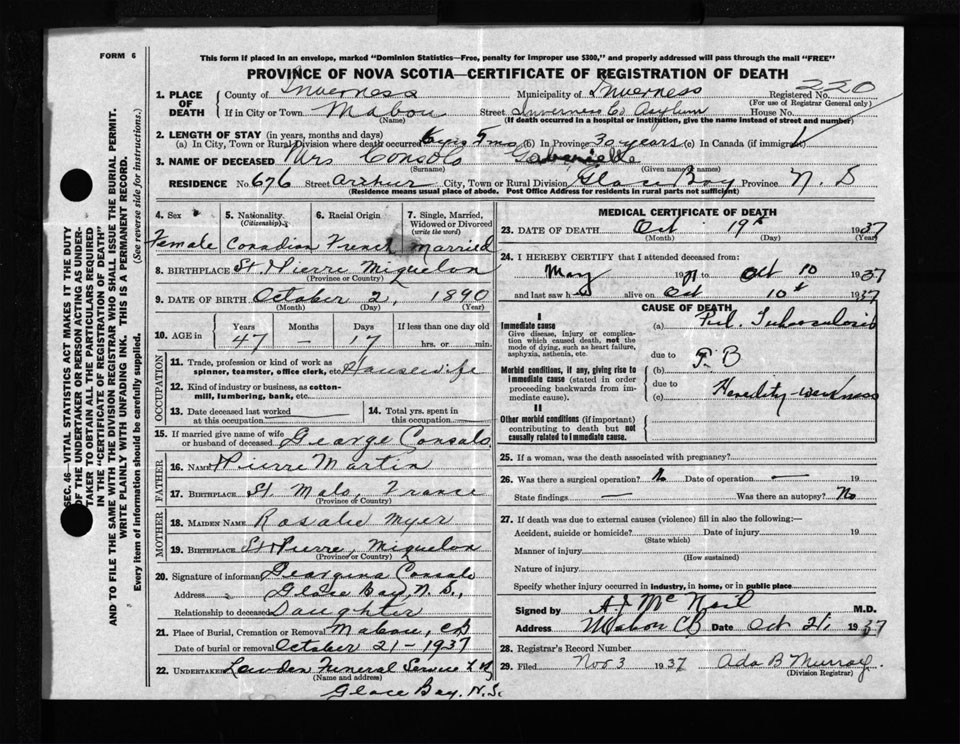 FORM 6
This form if placed in an envelope, marked "Dominion Statistics—Free, penalty for improper use $300," and properly addressed will pass through the mail "FREE"
PROVINCE OF NOVA SCOTIA—CERTIFICATE OF REGISTRATION OF DEATH
SEC. 46—VITAL STATISTICS ACT MAKES IT THE DUTY
OF THE UNDERTAKER OR PERSON ACTING AS UNDER-
TAKER TO OBTAIN ALL THE PARTICULARS REQUIRED
IN THE "CERTIFICATE OF REGISTRATION OF DEATH"
AND TO FILE THE SAME WITH THE DIVISION REGISTRAR WHO SHALL ISSUE THE BURIAL PERMIT.
WRITE PLAINLY WITH UNFADING INK. THIS IS A PERMANENT RECORD.
Every item of information should be carefully supplied. (See reverse side for instructions.)
1. PLACE OF DEATH County of Inverness Municipality of Inverness Registered No. 220
(For use of Registrar General only)
If in City or Town Mabou Street Inverness Co Asylum House No.
(Name) (If death occurred in a hospital or institution, give the name instead of street and number)
2. LENGTH OF STAY (in years, months and days)
(a) In City, Town or Rural Division where death occurred 5 mos (b) In Province 30 years (c) In Canada (if immigrant)
3. NAME OF DECEASED Mrs Consolo Gabrielle
(Surname) (Given name or names)
RESIDENCE No. 676 Street Arthur City, Town or Rural Division Glace Bay Province N. S
(Residence means usual place of abode. Post Office Address for residents in rural parts not sufficient)
4. Sex 5. Nationality (Citizenship) 6. Racial Origin 7. Single, Married, Widowed or Divorced (write the word)
Female Canadian French Married
8. BIRTHPLACE St. Pierre Miquelon
(Province or Country)
9. DATE OF BIRTH October 2, 1890
(Month) (Day) (Year)
10. AGE in Years Months Days If less than one day old
47 — 17 hrs. or min.
OCCUPATION
11. Trade, profession or kind of work as spinner, teamster, office clerk, etc. Housewife
12. Kind of industry or business, as cotton-mill, lumbering, bank, etc.
13. Date deceased last worked at this occupation 14. Total yrs. spent in this occupation
15. If married give name of wife or husband of deceased George Consalo
FATHER
16. NAME Pierre Martin
17. BIRTHPLACE St. Malo, France
(Province or Country)
MOTHER
18. MAIDEN NAME Rosalie Myer
19. BIRTHPLACE St Pierre, Miquelon
(Province or Country)
20. Signature of informant Georgina Consalo
Address Glace Bay, N. S.,
Relationship to deceased Daughter
21. Place of Burial, Cremation or Removal Mabou, CB
Date of burial or removal October 21 - 1937
22. UNDERTAKER Funeral Service
(Name and address)
Glace Bay, N.S.
MEDICAL CERTIFICATE OF DEATH
23. DATE OF DEATH Oct 19th 1937
(Month) (Day) (Year)
24. I HEREBY CERTIFY that I attended deceased from:
May 1937 to Oct 10 1937
and last saw h alive on Oct 10th 1937
CAUSE OF DEATH
I
Immediate cause (a) Pul. Tuberculosis
Give disease, injury or complication which caused death, not the mode of dying, such as heart failure, asphyxia, asthenia, etc.
due to
Morbid conditions, if any, giving rise to immediate cause (stated in order proceeding backwards from immediate cause). (b) T. B
due to
(c) Heredity weakness
II
Other morbid conditions (if important) contributing to death but not causally related to immediate cause.
25. If a woman, was the death associated with pregnancy?
26. Was there a surgical operation? No Date of operation — 19
State findings — Was there an autopsy? No
27. If death was due to external causes (violence) fill in also the following:—
Accident, suicide or homicide? Date of injury 19
(State which)
Manner of injury
(How sustained)
Nature of injury
Specify whether injury occurred in industry, in home, or in public place
Signed by A. J McNeil M.D.
Address Mabou CB Date Oct 21, 1937
28. Registrar's Record Number
29. Filed Nov 3 1937 Ada B Murray.
(Division Registrar)